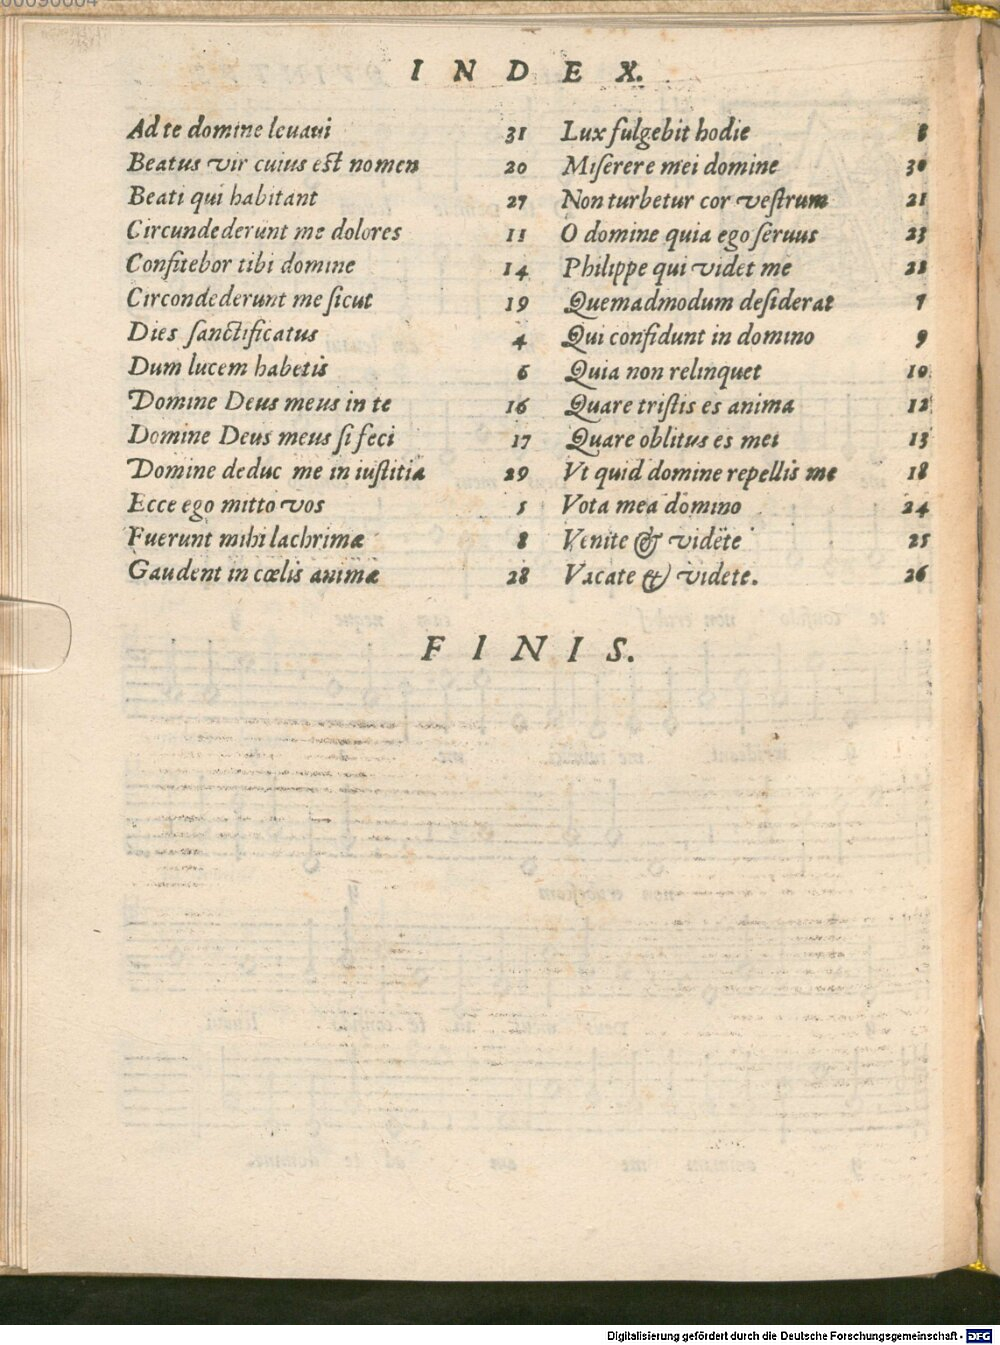 INDEX.
Ad te domine leuaui 31
Beatus vir cuius est nomen 20
Beati qui habitant 27
Circundederunt me dolores 11
Confitebor tibi domine 14
Circondederunt me sicut 19
Dies sanctificatus 4
Dum lucem habetis 6
Domine Deus meus in te 16
Domine Deus meus si feci 17
Domine deduc me in iustitia 29
Ecce ego mitto vos 5
Fuerunt mihi lachrimæ 8
Gaudent in cœlis animæ 28
Lux fulgebit hodie
Miserere mei domine 30
Non turbetur cor vestrum 21
O domine quia ego seruus 23
Philippe qui videt me 22
Quemadmodum desiderat 7
Qui confidunt in domino 9
Quia non relinquet 10
Quare tristis es anima 12
Quare oblitus es mei 13
Vt quid domine repellis me 18
Vota mea domino 24
Venite & videte 25
Vacate & videte. 26
FINIS.
Digitalisierung gefördert durch die Deutsche Forschungsgemeinschaft - DFG